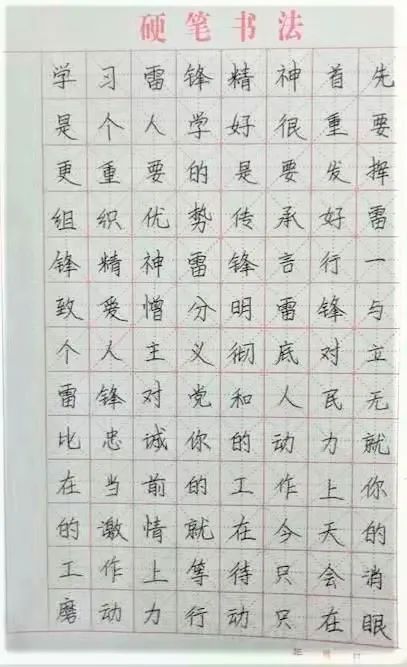 硬笔书法
学习雷锋精神首先
是个人学好很重要
更重要的是要发挥
组织优势传承好雷
锋精神雷锋言行一
致爱憎分明雷锋与
个人主义彻底对立
雷锋对党和人民无
比忠诚你的动力就
在当前的工作上你
的激情就在今天的
工作上等待只会消
磨动力行动只在眼
年 月 日